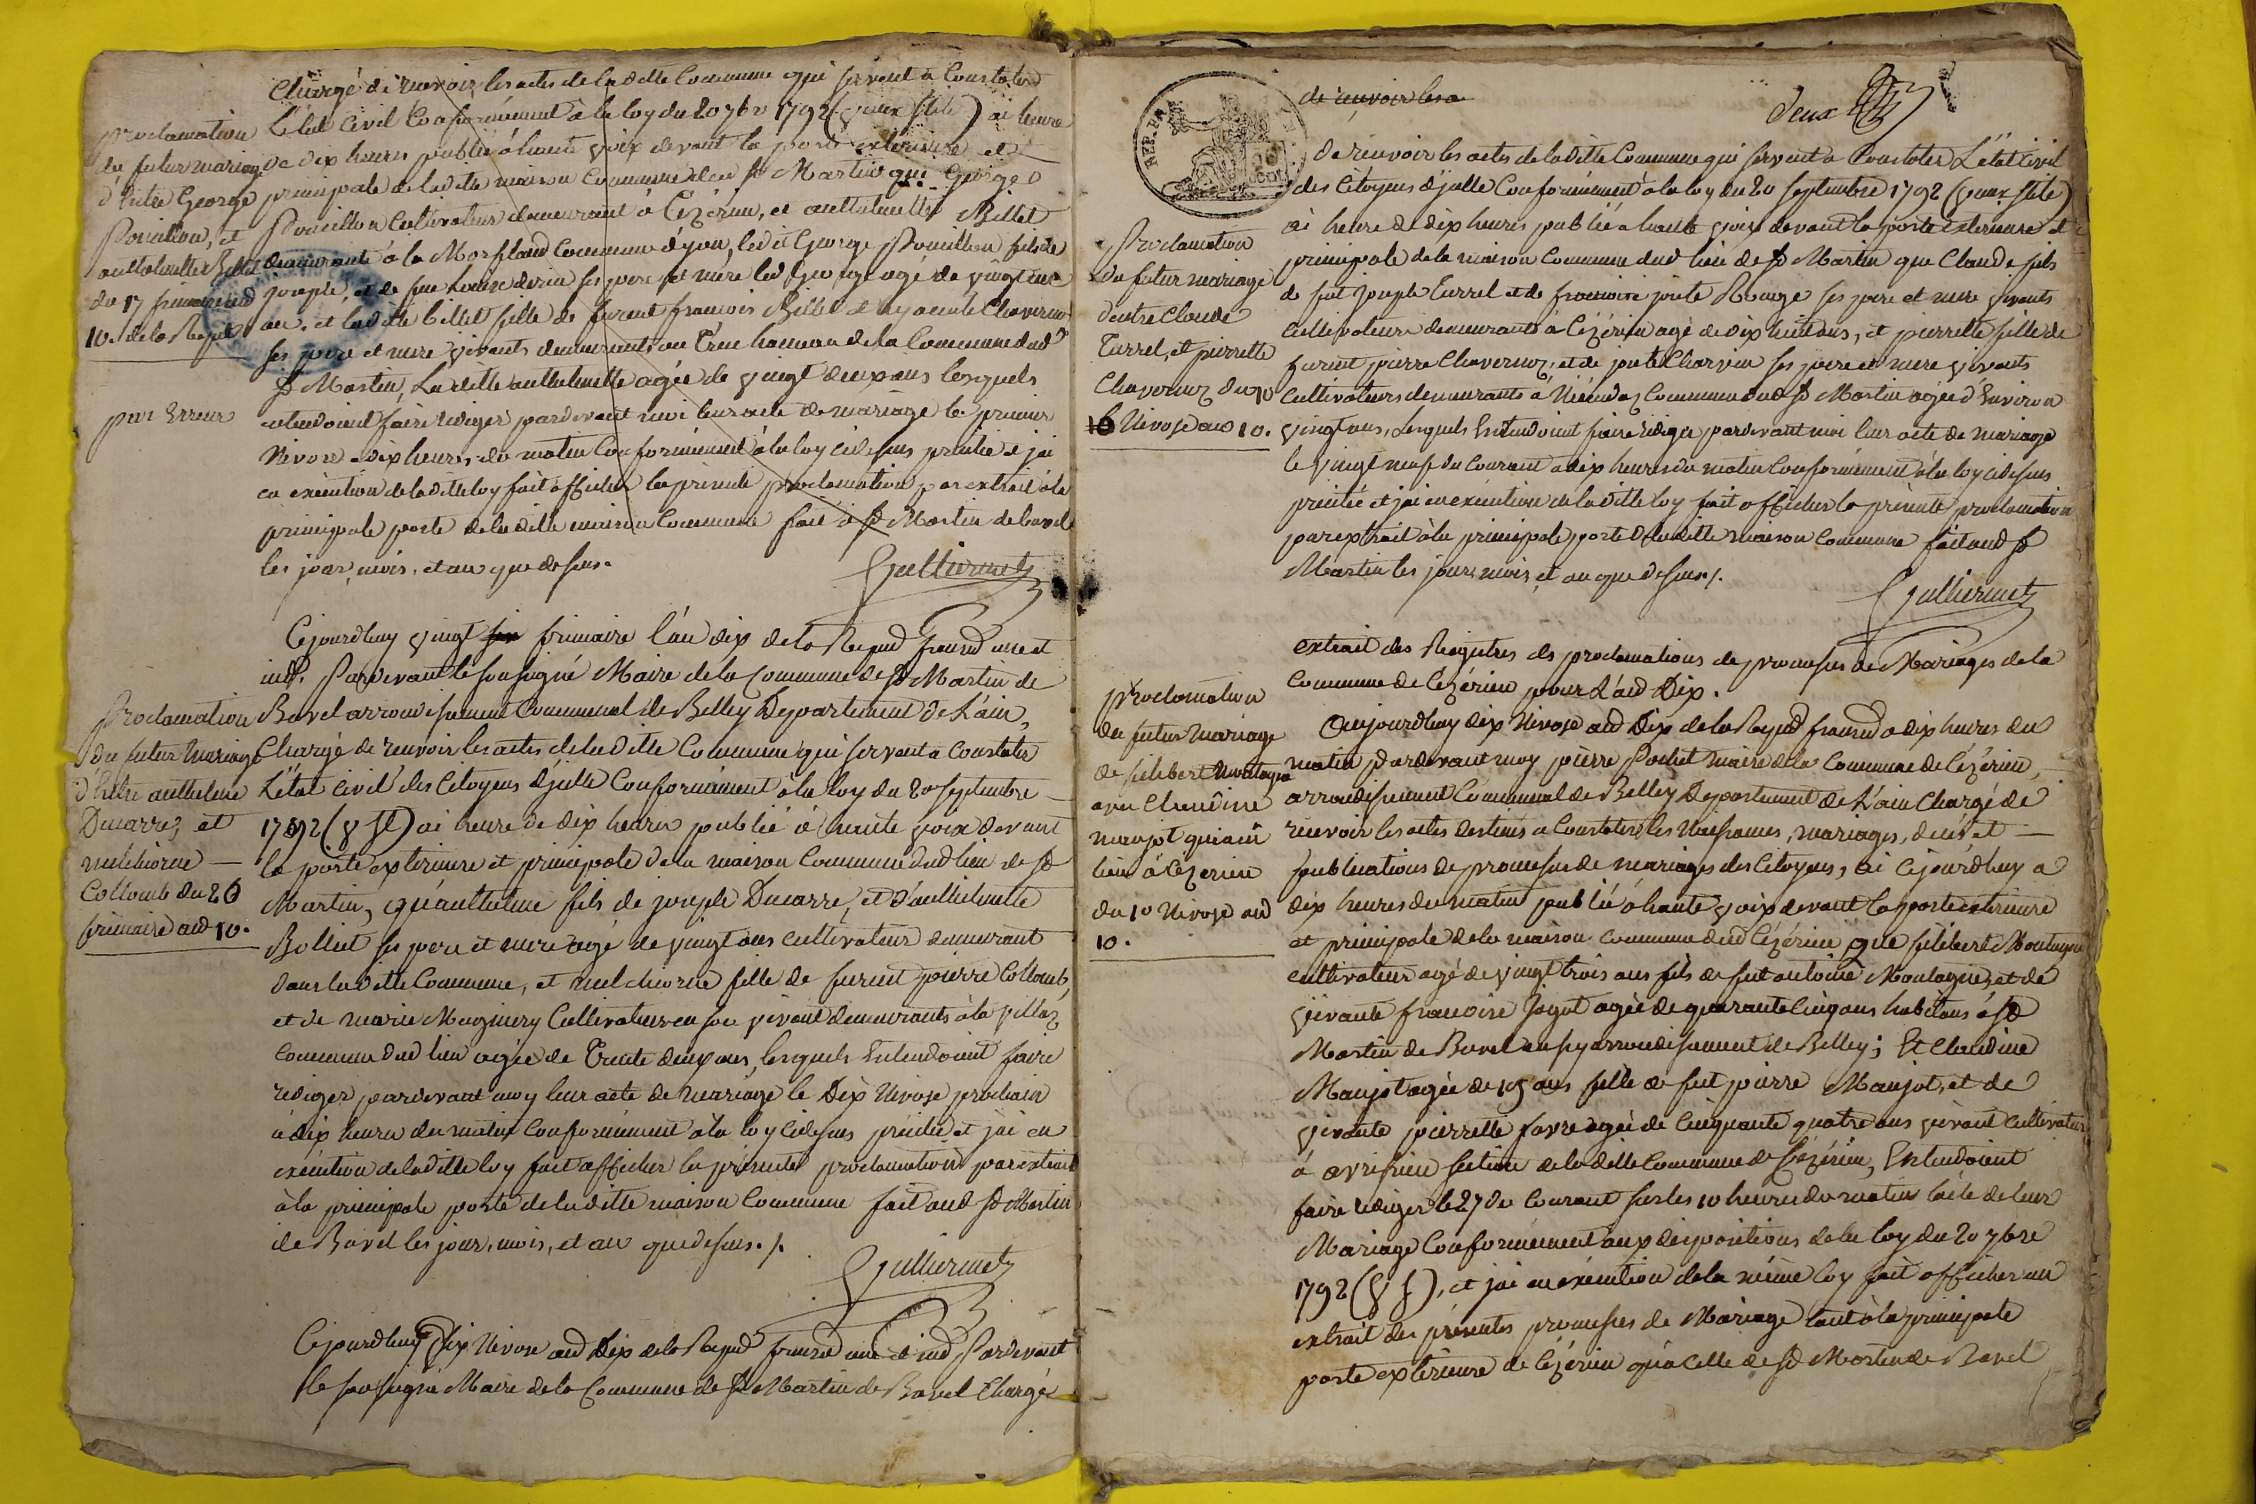 Chargé de recevoir les actes de ladille Commune qui servent à Constater
L'état Civil Conformément à la loy du 20 7bre 1792 (vieux stile) ai heure
de dix heures publié à haute voix devant la porte exterieure et
principale de ladille maison Commune dud St Martin que George
Pouillou Cultivateur demeurant à Cézérieu, et anthelmette Billet
demeurante à la Commune d'yon, ledit George Pouillou fils de
joseph, et de feue Louise ses pere et mère led George agé de vingt
ans, et ladille billet fille de furent francois Billet et hyacinte Chavernoz
ses pere et mere vivants demeurants au hameau de la Commune dud
St Martin, Ladille anthelmette agée de vingt deux ans lesquels
entendoient faire rediger pardevant moi leur acte de mariage le premier
Nivose a dix heures du matin Conformément à la loy cidessus précitée et jai
en exécution de ladille loy fait afficher la présente proclamation par extrait à la
principale porte de ladille maison Commune fait à St Martin de bavel
les jour, mois, et an que dessus.
Gulliermet
proclamation
du futur mariage
d'Entre George
Pouillou, et
anthelmette Billet
du 17 frimaire and
10. de la Repub
par Erreur
Cejourdhuy vingt six frimaire l'an dix de la Repub francse une et
ind. Pardevant le soussigné Maire de la Commune de St Martin de
Bavel arrondissement Communal de Belley Departement de L'ain,
Chargé de recevoir les actes de ladille Commune qui servent a Constater
L'état Civil des Citoyens d'jcelle Conformément à la loy du 20 septembre
1792 (v st) ai heure de dix heures publié à haute voix devant
la porte exterieure et principale de la maison Commune dud lieu de St
Martin, qu'anthelme fils de joseph Ducarre, et d'anthelmette
Bolliet ses pere et mere agé de vingt ans cultivateur demeurant
dans ladille Commune, et melchiorne fille de furent pierre Colloub,
et de marie Mugniery Cultivateurs en son vivant demeurants à la villaz
Commune dud lieu agée de Trente deux ans, lesquels Entendoient faire
rediger pardevant moy leur acte de mariage le Dix Nivose prochain
à dix heures du matin Conformément à la loy cidessus précitée et jai en
exécution de ladille loy fait afficher la présente proclamation par extrait
à la principale porte de ladille maison Commune fait aud St Martin
de Bavel les jour, mois, et an que dessus./.
Gulliermet
Proclamation
du futur Mariage
d'Entre anthelme
Ducarre, et
melchiorne
Colloub du 26
frimaire and 10.
Cejourdhuy Dix Nivose and Dix de la Repub francse une et ind, Pardevant
le soussigné Maire de la Commune de St Martin de Bavel Chargé
REP. FRA.
de recevoir les a
deux
de recevoir les actes de ladille Commune qui servent a Constater L'état Civil
des Citoyens d'jcelle Conformément à la loy du 20 septembre 1792 (vieux stile)
ai heure de dix heures publié a haute voix devant la porte exterieure et
principale de la maison Commune dud lieu de St Martin que Claude fils
de feu joseph Turrel et de francoise Rouge ses pere et mere vivants
Cultivateurs demeurants à Cézérieu agé de dix huit ans, et pierrette fille de
furent pierre Chavernoz, et de Charvin ses pere et mere vivants
Cultivateurs demeurants à Commune dud St Martin agée d'Environ
vingt ans, Lesquels Entendoient faire rédiger pardevant moi leur acte de mariage
le vingt neuf du Courant a dix heures du matin Conformément à la loy cidessus
précitée et jai en exécution de ladille loy fait afficher la présente proclamation
par extrait à la principale porte de ladille maison Commune fait aud St
Martin les jour, mois, et an que dessus./.
Gulliermet
Proclamation
du futur mariage
d'entre Claude
Turrel, et pierrette
Chavernoz du 10
16 Nivose and 10.
Extrait des Registres des proclamations de promesses de Mariages de la
Commune de Cézérieu pour L'and Dix.
Aujourdhuy dix Nivose and Dix de la Repub francse a dix heures du
matin Pardevant moy pierre Pochet maire de la Commune de Cézérieu,
arrondissement Communal de Belley Departement de L'ain Chargé de
recevoir les actes destinés a Constater les Naissances, mariages, décès et
publications de promesses de mariages des Citoyens, ai Cejourdhuy a
dix heures du matin publié à haute voix devant la porte exterieure
et principale de la maison Commune dud Cézérieu que filibert Montagne
cultivateur agé de vingt trois ans fils de feu antoine Montagne, et de
vivante francoise Jogut agée de quarante Cinq ans habitans à St
Martin de Bavel arrondissement de Belley; Et Claudine
Maujot agée de 19 ans fille de feu pierre Maujot, et de
vivante pierrette favre agée de Cinquante quatre ans vivant cultivateur
à avrissieu section de ladille Commune de Cézérieu, Entendoient
faire rediger le 27 du Courant sur les 10 heures du matin l'acte de leur
Mariage Conformément aux dispositions de la loy du 20 7bre
1792 (v s), et jai en exécution de la même loy fait afficher un
extrait des présentes promesses de Mariage tant à la principale
porte exterieure de Cézérieu qu'a Celle de St Martin de Bavel
proclamation
du futur mariage
de filibert Montagne
avec Claudine
maujot qui a eu
lieu à Cézérieu
du 10 Nivose and
10.